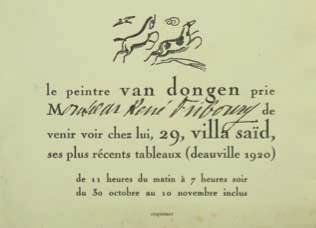 le peintre van dongen prie
Monsieur René Fribourg de
venir voir chez lui, 29, villa saïd,
ses plus récents tableaux (deauville 1920)
de 11 heures du matin à 7 heures soir
du 30 octobre au 10 novembre inclus